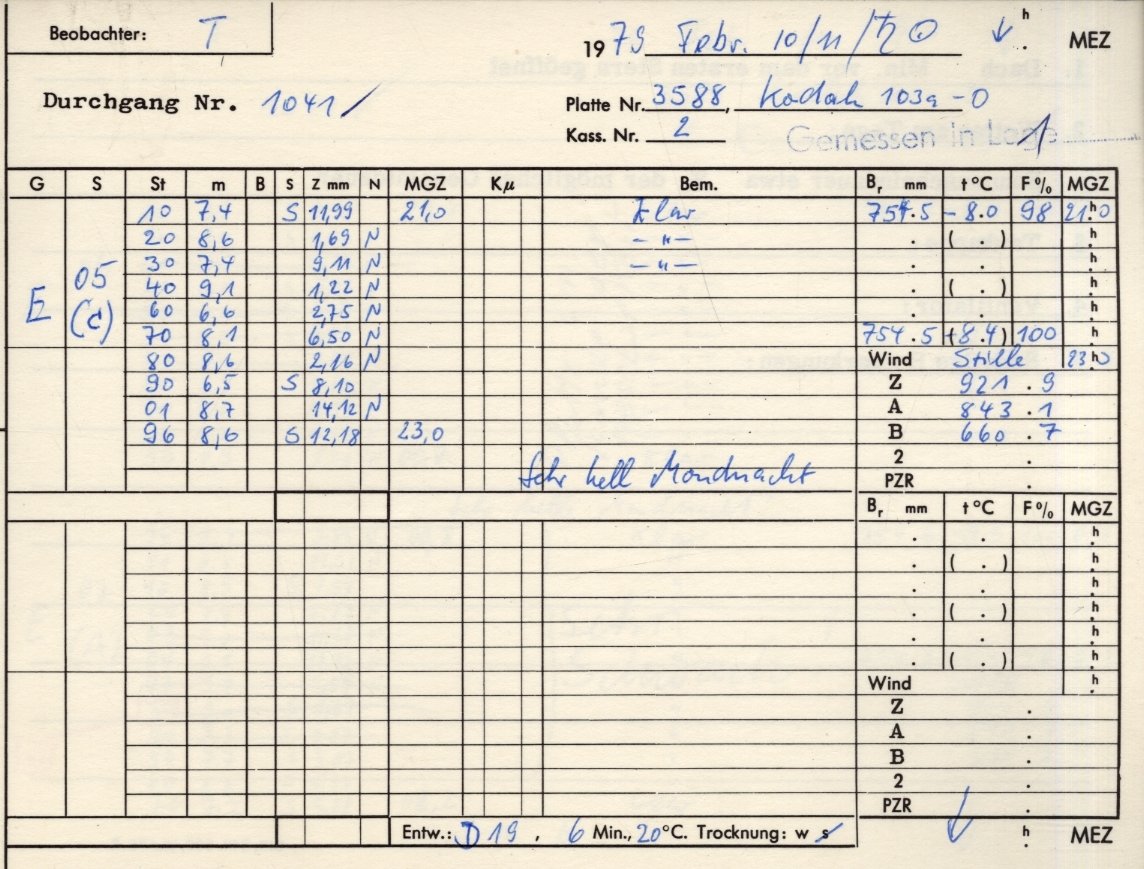 Beobachter: T
1979 Febr. 10/11 /♄ ☉ h . MEZ
Durchgang Nr. 1041/
Platte Nr. 3588, Kodak 103a-O
Kass. Nr. 2
Gemessen in Lage 1
G S St m B S Z mm N MGZ Kμ Bem. Br mm t °C F% MGZ
10 7,4 S 11,99 21,0 klar 754.5 -8.0 98 21h0
20 8,6 1,69 N —"— . ( . ) h
30 7,4 9,11 N —"— . . h
E 05 (d) 40 9,1 1,22 N . ( . ) h
60 6,6 2,75 N . . h
70 8,1 6,50 N 754.5 (+8.4) 100 h
80 8,6 2,16 N Wind Stille 23h0
90 6,5 S 8,10 Z 921.9
01 8,7 14,12 N A 843.1
96 8,6 S 12,18 23,0 B 660.7
2 .
Sehr hell Mondnacht PZR .
Br mm t °C F% MGZ
. . h
. ( . ) h
. . h
. ( . ) h
. . h
. ( . ) h
Wind h
Z .
A .
B .
2 .
PZR .
Entw.: D 19 , 6 Min., 20°C. Trocknung: w s h . MEZ